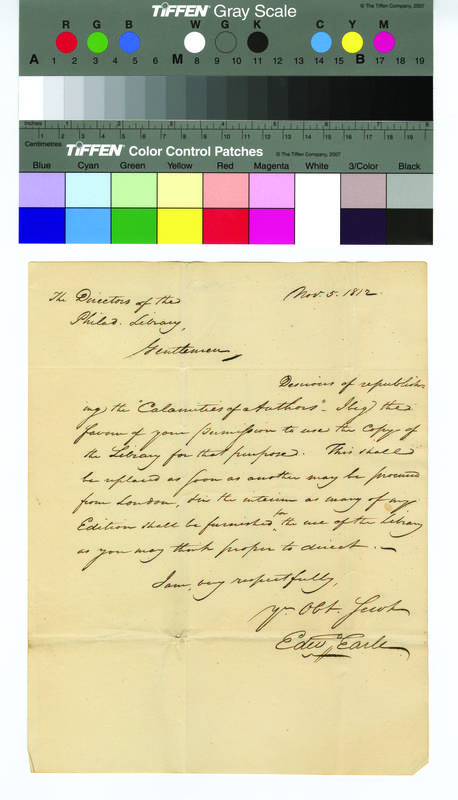 TIFFEN Gray Scale
© The Tiffen Company, 2007
R G B W G K C Y M
A 1 2 3 4 5 6 M 8 9 10 11 12 13 14 15 B 17 18 19
Inches 1 2 3 4 5 6 7 8
Centimetres 1 2 3 4 5 6 7 8 9 10 11 12 13 14 15 16 17 18 19
TIFFEN Color Control Patches
© The Tiffen Company, 2007
Blue Cyan Green Yellow Red Magenta White 3/Color Black
Nov. 5. 1812
The Directors of the
Philad. Library,
Gentlemen,
Desirous of republish
ing the "Calamities of Authors" I beg the
favour of your permission to use the Copy of
the Library for that purpose. This shall
be replaced as soon as another may be procured
from London, in the interim as many of my
Edition shall be furnished for the use of the Library
as you may think proper to direct. —
I am, very respectfully,
Yr. Obt. Servt
Edwd Earle